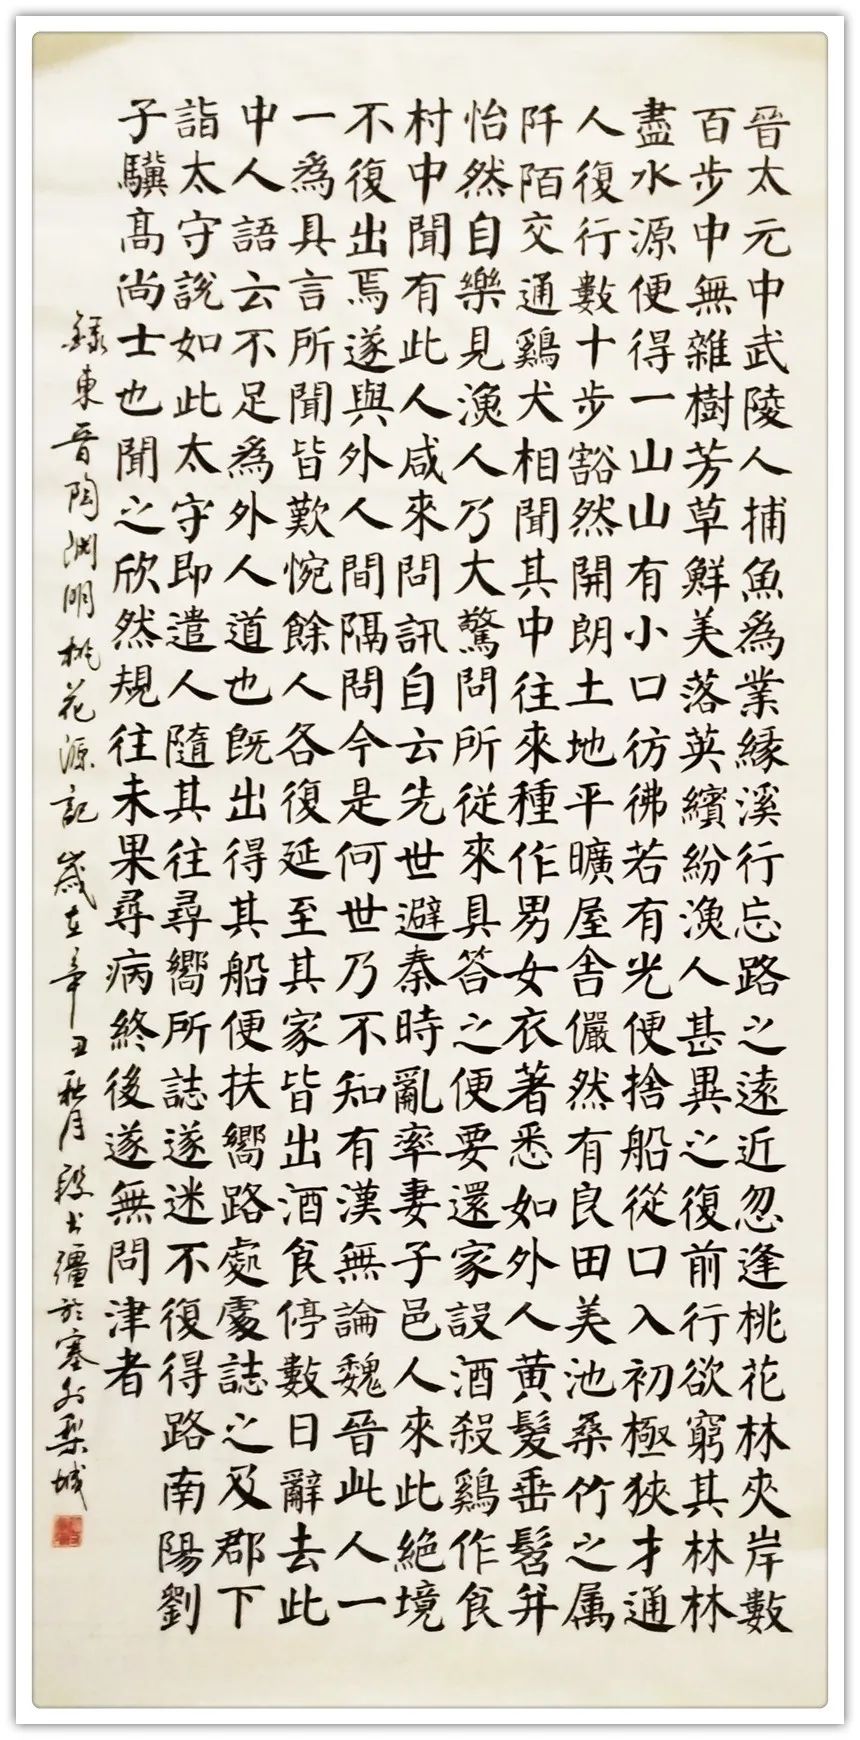 晉太元中武陵人捕魚爲業緣溪行忘路之遠近忽逢桃花林夾岸數
百步中無雜樹芳草鮮美落英繽紛漁人甚異之復前行欲窮其林林
盡水源便得一山山有小口彷彿若有光便捨船從口入初極狹才通
人復行數十步豁然開朗土地平曠屋舍儼然有良田美池桑竹之属
阡陌交通鷄犬相聞其中往來種作男女衣著悉如外人黄髮垂髫并
怡然自樂見漁人乃大驚問所從來具答之便要還家設酒殺鷄作食
村中聞有此人咸來問訊自云先世避秦時亂率妻子邑人來此絶境
不復出焉遂與外人間隔問今是何世乃不知有漢無論魏晉此人一
一爲具言所聞皆歎惋餘人各復延至其家皆出酒食停數日辭去此
中人語云不足爲外人道也既出得其船便扶嚮路處處誌之及郡下
詣太守説如此太守即遣人隨其往尋嚮所誌遂迷不復得路南陽劉
子驥髙尚士也聞之欣然規往未果尋病終後遂無問津者
錄東晉陶渊明桃花源記 歲在辛丑秋月 段疆於塞外梨城